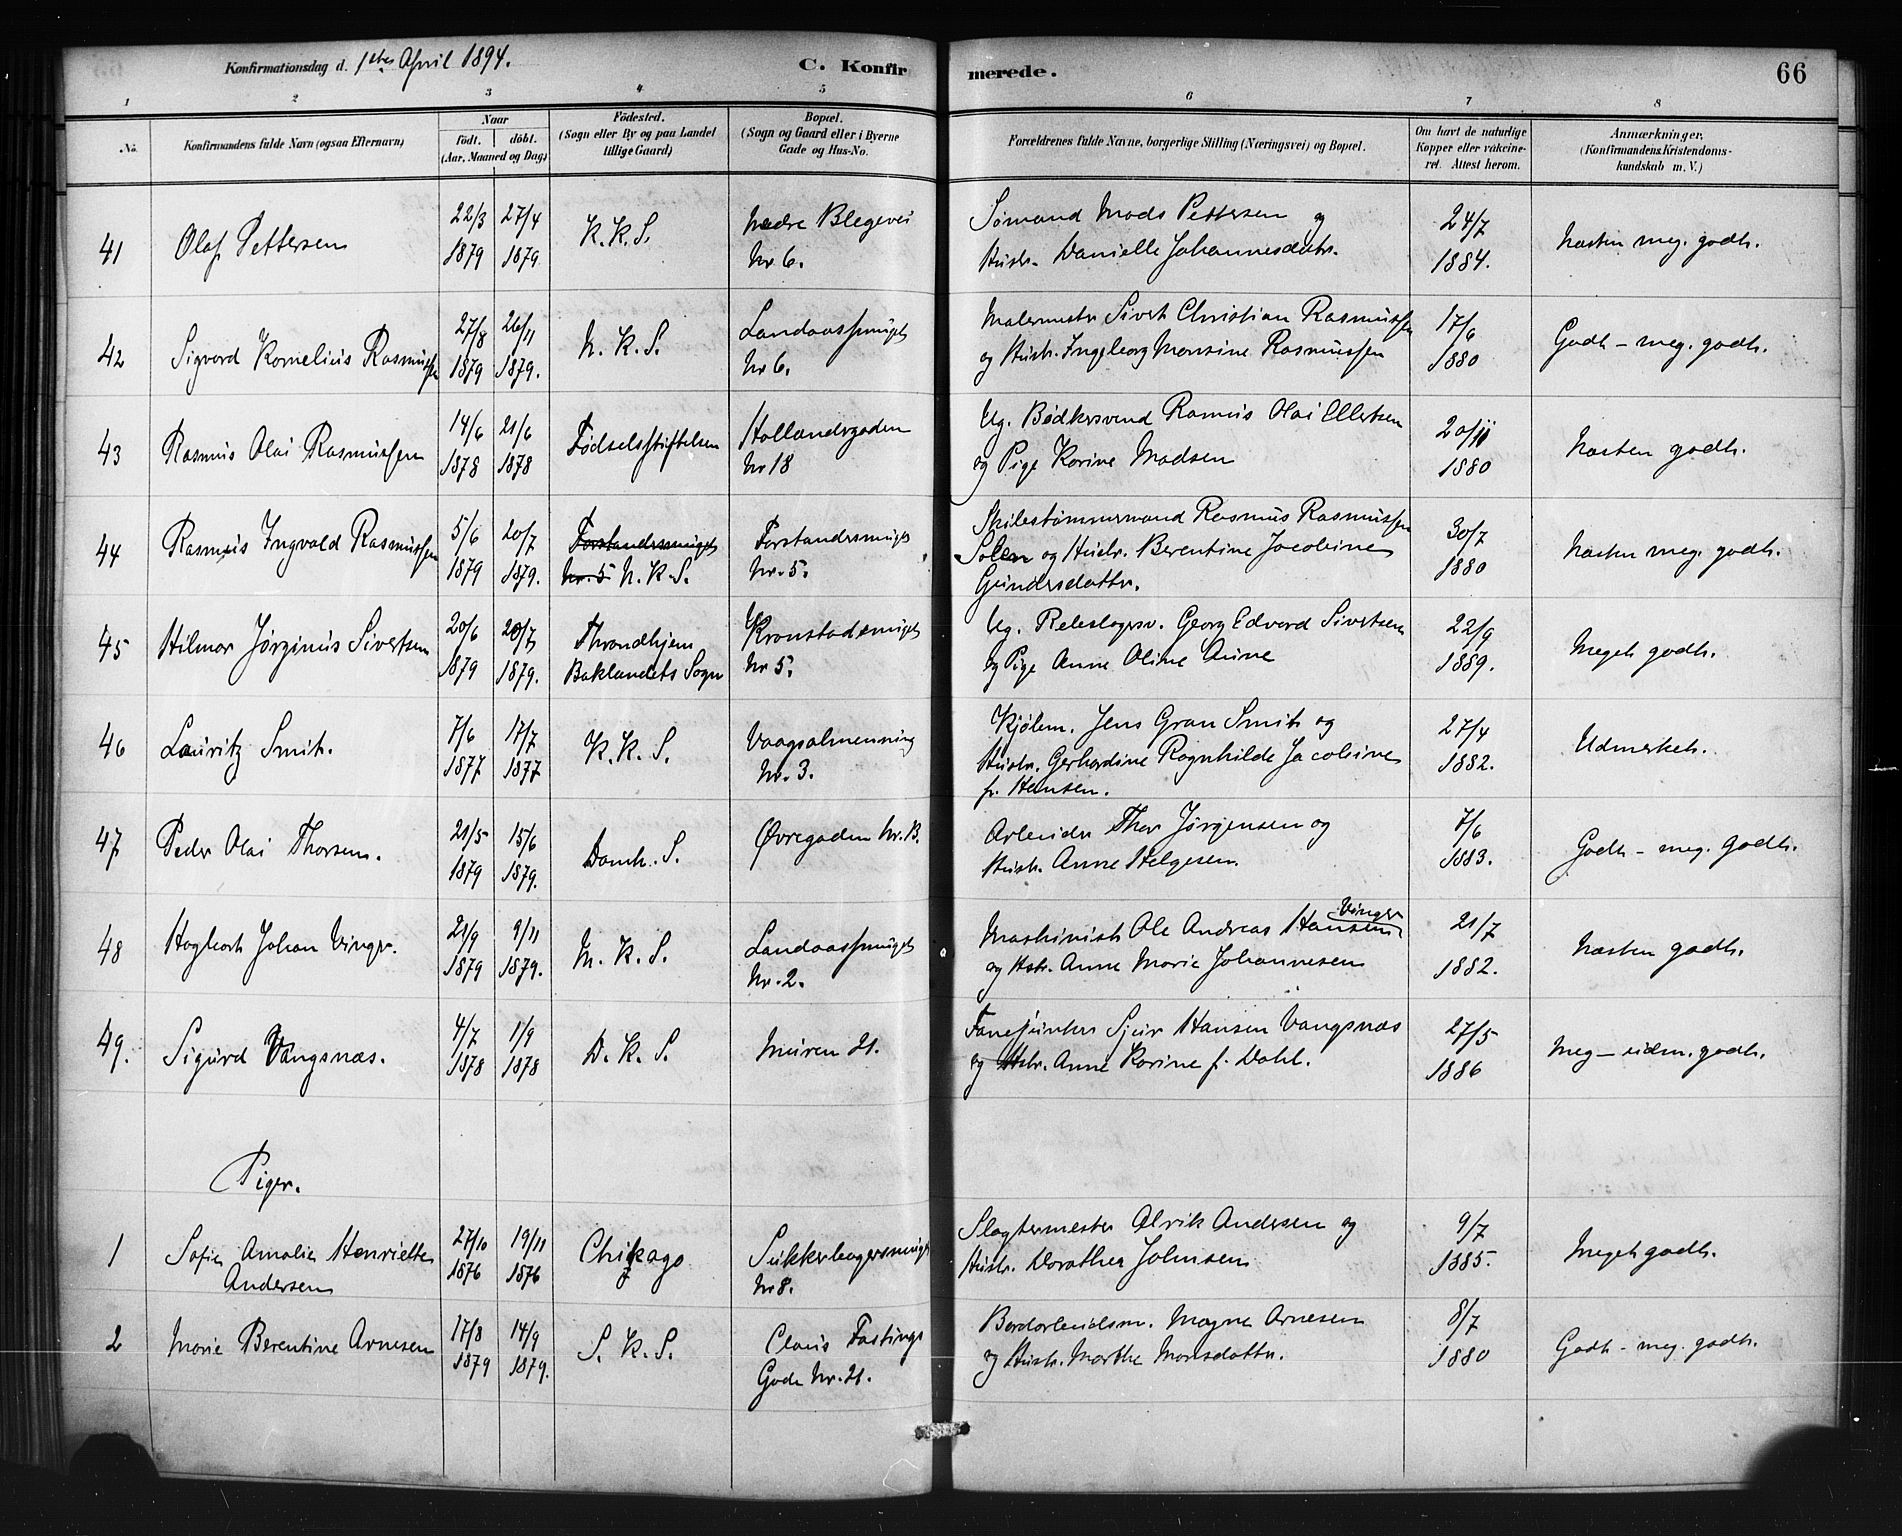 Konfirmationsdag d. 1ste April 1894.
C. Konfirmerede.
66
1 2 3 4 5 6 7 8
No.
Konfirmandens fulde Navn (ogsaa Efternavn)
Naar
födt. döbt.
(Aar, Maaned og Dag)
Födested.
(Sogn eller By og paa Landet
tillige Gaard)
Bopæl.
(Sogn og Gaard eller i Byerne
Gade og Hus-No.
Forældrenes fulde Navne, borgerlige Stilling (Næringsvei) og Bopæl.
Om havt de naturlige
Kopper eller vakcine-
ret. Attest herom.
Anmærkninger,
(Konfirmandens Kristendoms-
kundskab m. V.)
41 Olaf Pettersen 22/3 1879 27/4 1879 K.K.S. Nedre Blegevei Nr 6.
Sømand Mads Pettersen og
Hustr. Danielle Johannesdatr.
24/7 1884. Næsten meg. godt.
42 Sigvard Kornelius Rasmussen 27/8 1879 26/11 1879. N.K.S. Landaassmuget Nr 6.
Malermestr Sivert Christian Rasmussen
og Hustr. Ingeborg Monsine Rasmussen
17/6 1880 Godt - meg. godt.
43 Rasmus Olai Rasmussen 14/6 1878 21/6 1878 Fødselsstiftelsen Hollandergaden Nr 18
Ug. Bødkersvend Rasmus Olai Ellertsen
og Pige Karine Madsen
20/11 1880 Næsten godt.
44 Rasmus Ingvald Rasmussen 5/6 1879 20/7 1879. Forstandersmuget Nr. 5 N.K.S. Forstandersmuget Nr. 5.
Skibstømmermand Rasmus Rasmussen
Solem og Hustr. Berentine Jacobine
Gundersdattr.
30/7 1880 Næsten meg. godt.
45 Hilmar Jørginus Sivertsen 20/6 1879 20/7 1879. Throndhjem Baklandets Sogn Kronstadsmuget Nr 5.
Ug. Rebslagersv. Georg Edvard Sivertsen
og Pige Anne Oline Aune
22/9 1889. Meget godt.
46 Lauritz Smit. 7/6 1877 17/7 1877 K.K.S. Vaagsalmenning Nr. 3.
Kjøbm. Jens Gran Smit og
Hustr. Gerhardine Ragnhilde Jacobine
f. Hansen.
27/4 1882. Udmerket.
47 Peder Olai Thorsen. 21/5 1879 15/6 1879. Domk. S. Øvregaden Nr. B.
Arbeider Thor Jørgensen og
Hustr. Anne Helgesen.
7/6 1883. Godt - meg. godt.
48 Hagbart Johan Vinger. 21/9 1879 9/11 1879. N.K.S. Landaassmuget Nr. 2.
Vinger
Maskinist Ole Andreas Hansen
og Hstr. Anne Marie Johannesen
21/7 1882. Næsten godt.
49. Sigurd Vangsnæs. 4/7 1878 1/9 1878 D.K.S. Muren 21.
Fanejunker Sjur Hansen Vangsnæs
og Hstr. Anne Karine f. Dahl.
27/5 1886 Meg - udm. godt.
Piger.
1 Sofie Amalie Henriette Andersen 27/10 1876 19/11 1876 Chikago Sukkerhagersmuget Nr 8.
Slagtermester Alrik Andersen og
Hustr. Dorathea Johnsen
9/7 1885. Meget godt.
2 Marie Berentine Arnesen 17/8 1879 14/9 1879. S.K.S. Claus Fastings Gade Nr. 21.
Bordarbeidsm. Magne Arnesen
og Hustr. Marthe Monsdattr.
8/7 1880 Godt - meg. godt.